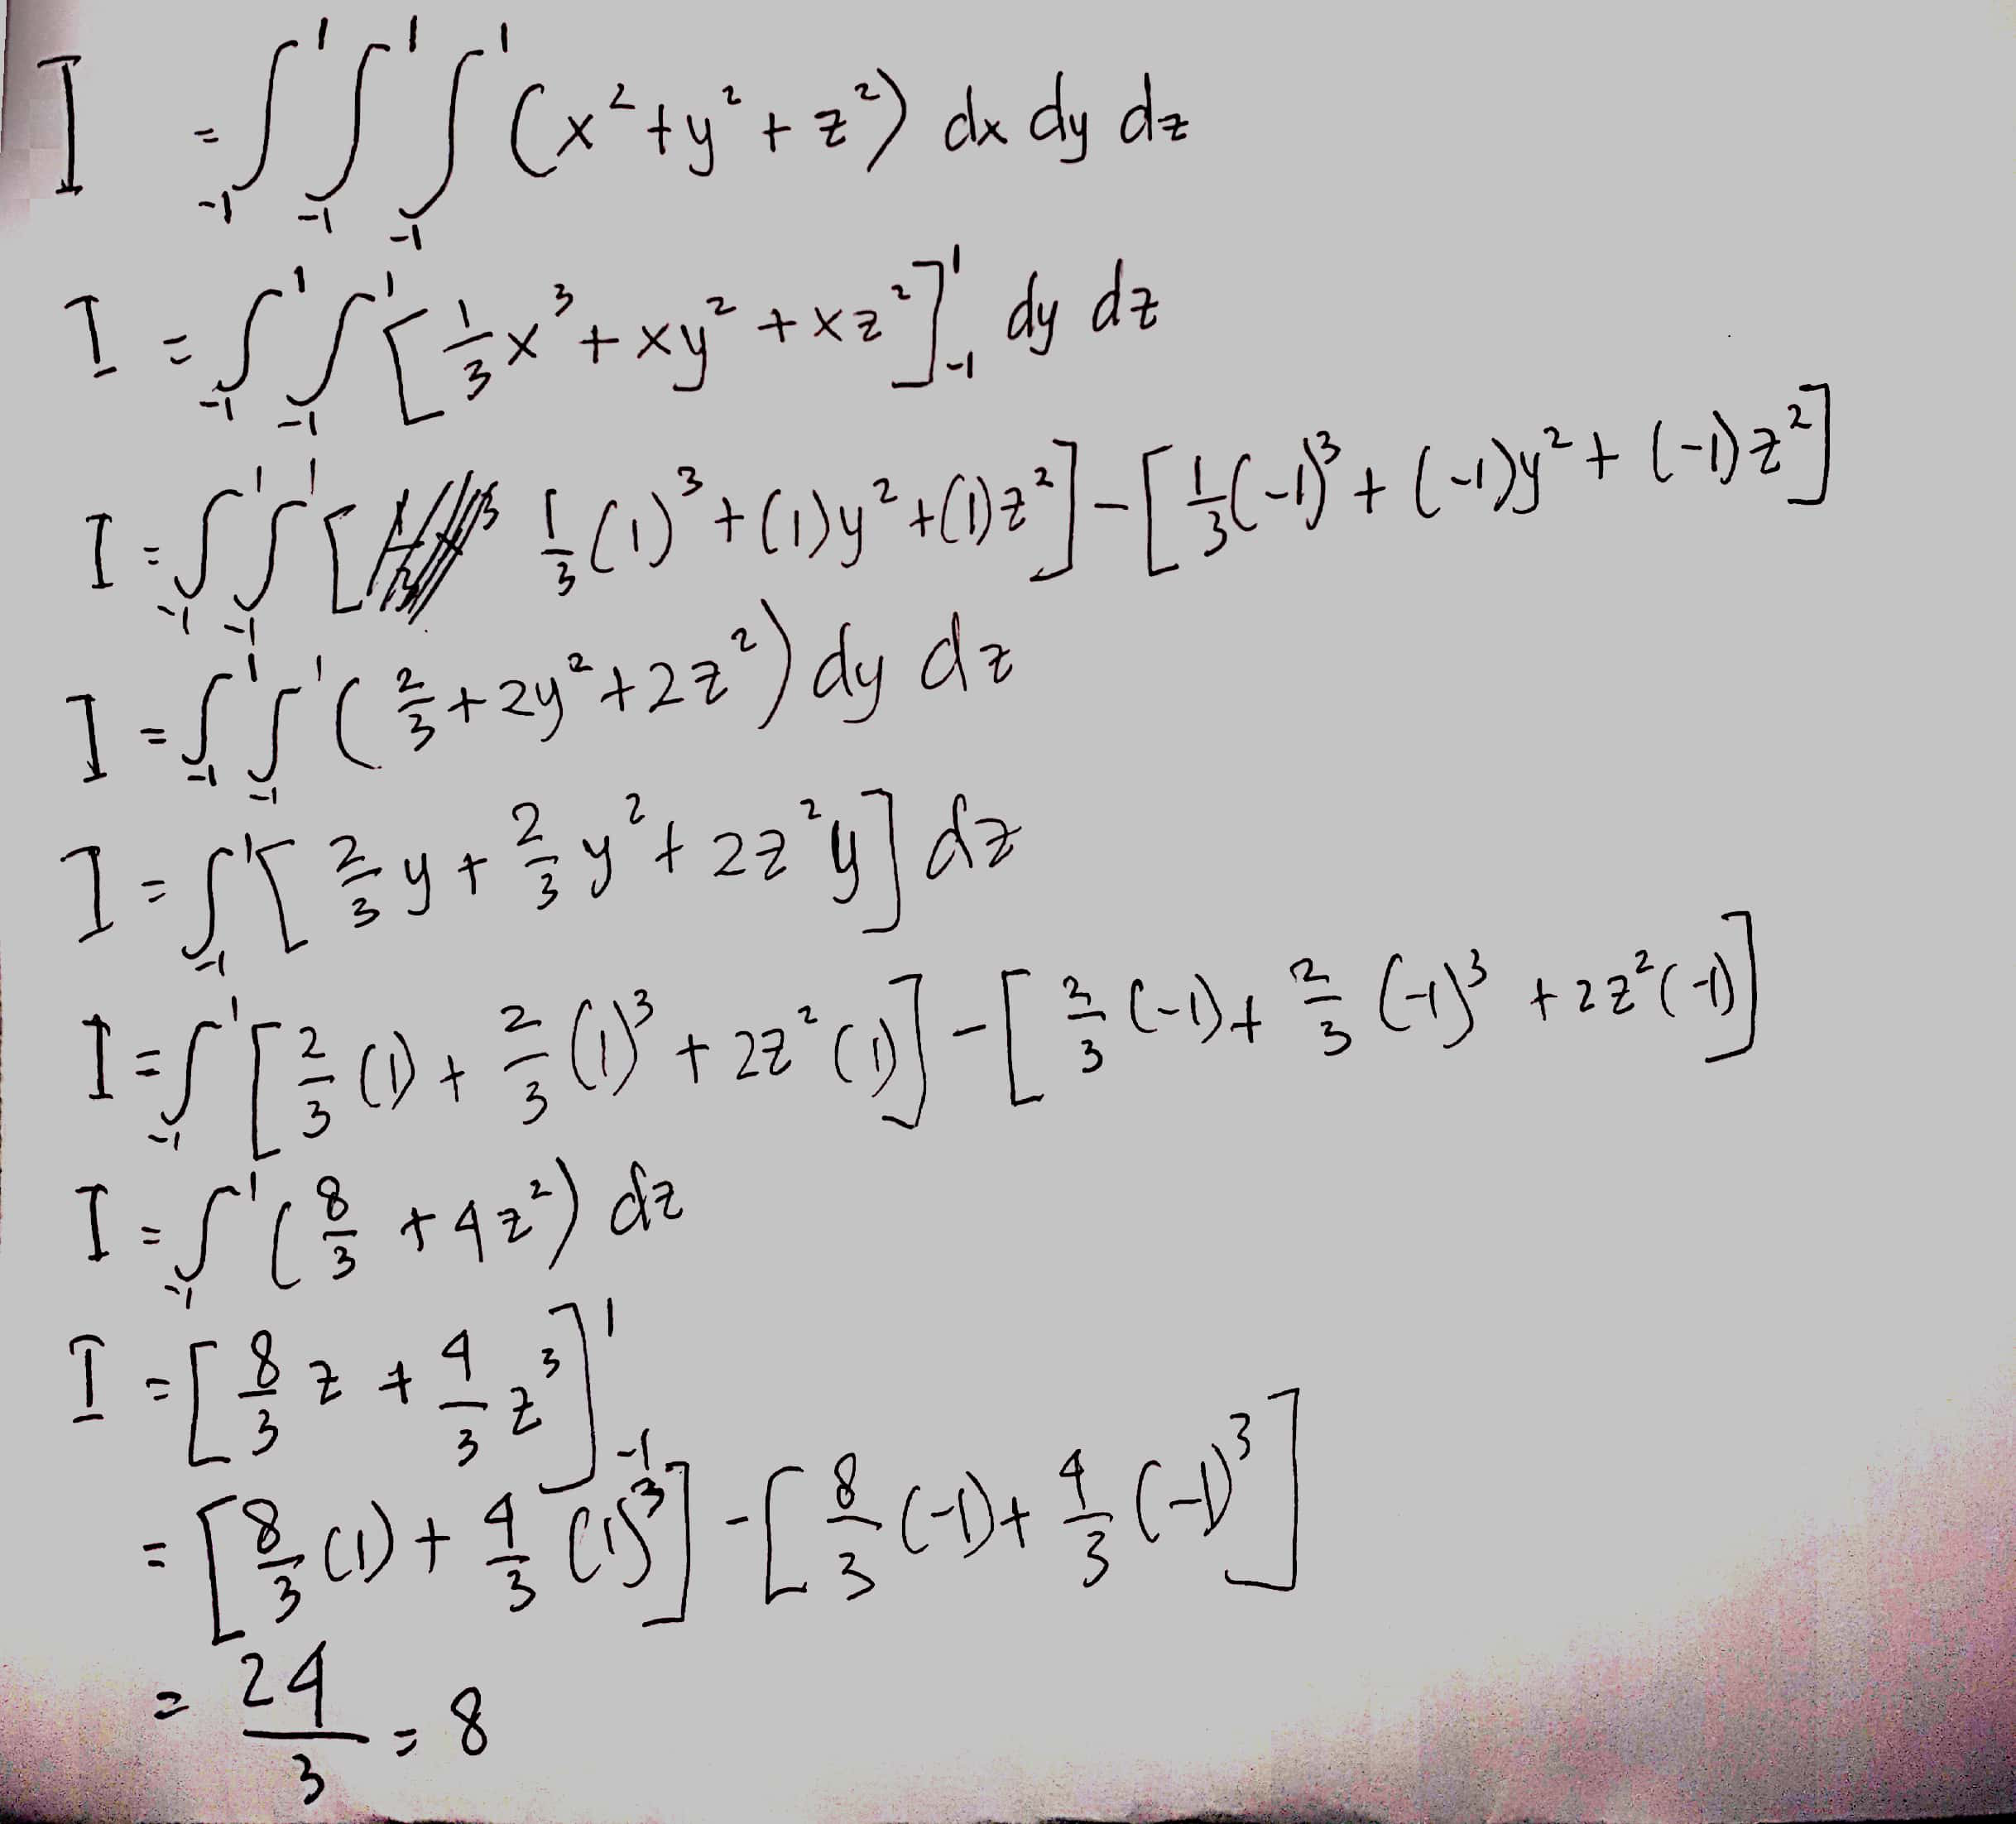 I = ∫₋₁¹ ∫₋₁¹ ∫₋₁¹ (x² + y² + z²) dx dy dz
I = ∫₋₁¹ ∫₋₁¹ [1/3 x³ + xy² + xz²]₋₁¹ dy dz
I = ∫₋₁¹ ∫₋₁¹ [1/3 (1)³ + (1)y² + (1)z²] - [1/3 (-1)³ + (-1)y² + (-1)z²]
I = ∫₋₁¹ ∫₋₁¹ (2/3 + 2y² + 2z²) dy dz
I = ∫₋₁¹ [2/3 y + 2/3 y² + 2z²y] dz
I = ∫₋₁¹ [2/3 (1) + 2/3 (1)³ + 2z² (1)] - [2/3 (-1) + 2/3 (-1)³ + 2z² (-1)]
I = ∫₋₁¹ (8/3 + 4z²) dz
I = [8/3 z + 4/3 z³]₋₁¹
= [8/3 (1) + 4/3 (1)³] - [8/3 (-1) + 4/3 (-1)³]
= 24/3 = 8